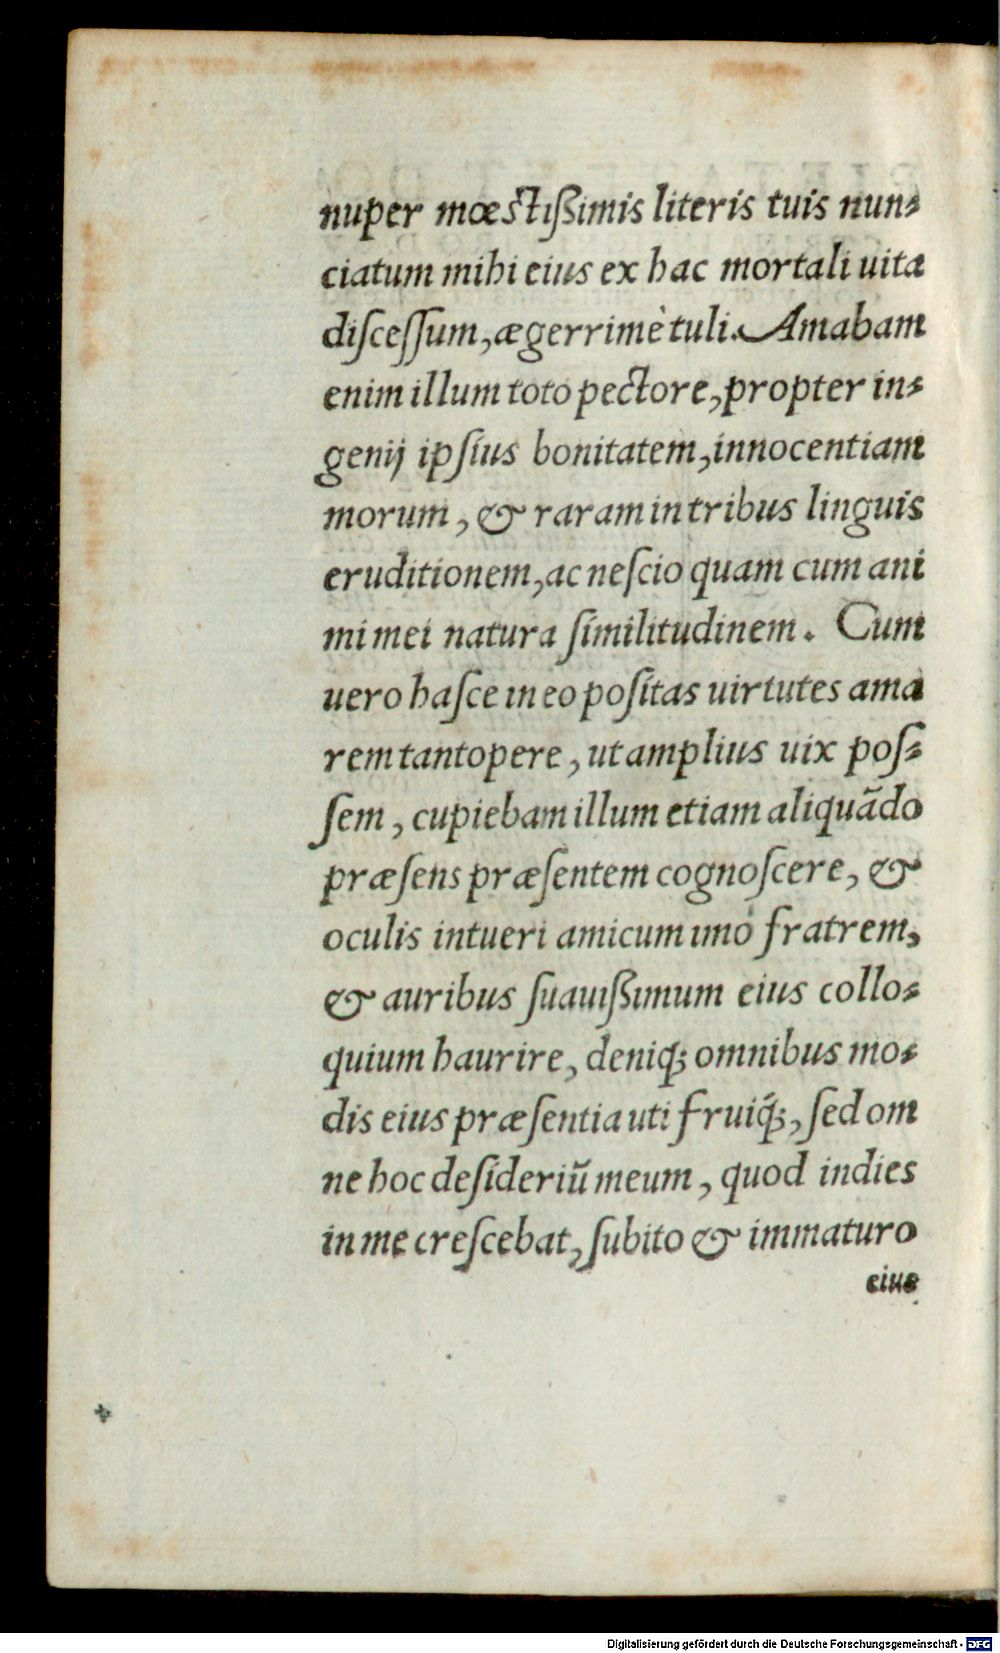 nuper mœstißimis literis tuis nun⸗
ciatum mihi eius ex hac mortali uita
diſceſſum, ægerrimè tuli. Amabam
enim illum toto pectore, propter in⸗
genij ipſius bonitatem, innocentiam
morum, & raram in tribus linguis
eruditionem, ac neſcio quam cum ani
mi mei natura ſimilitudinem. Cum
uero haſce in eo poſitas uirtutes ama
rem tantopere, ut amplius uix poſ⸗
ſem, cupiebam illum etiam aliquãdo
præſens præſentem cognoſcere, &
oculis intueri amicum imò fratrem,
& auribus ſuauißimum eius collo⸗
quium haurire, deniq́; omnibus mo⸗
dis eius præſentia uti fruiq́;, ſed om
ne hoc deſideriũ meum, quod indies
in me creſcebat, ſubito & immaturo
eius
Digitalisierung gefördert durch die Deutsche Forschungsgemeinschaft - DFG